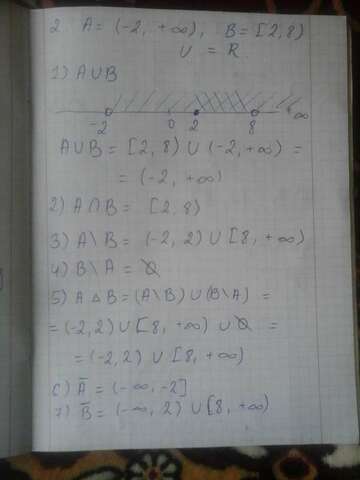 2. A = (-2, +∞), B = [2, 8)
U = R
1) A∪B
-2 0 2 8 +∞
A∪B = [2, 8) ∪ (-2, +∞) =
= (-2, +∞)
2) A∩B = [2, 8)
3) A\B = (-2, 2) ∪ [8, +∞)
4) B\A = Ø
5) A △ B = (A\B) ∪ (B\A) =
= (-2, 2) ∪ [8, +∞) ∪ Ø =
= (-2, 2) ∪ [8, +∞)
6) A̅ = (-∞, -2]
7) B̅ = (-∞, 2) ∪ [8, +∞)